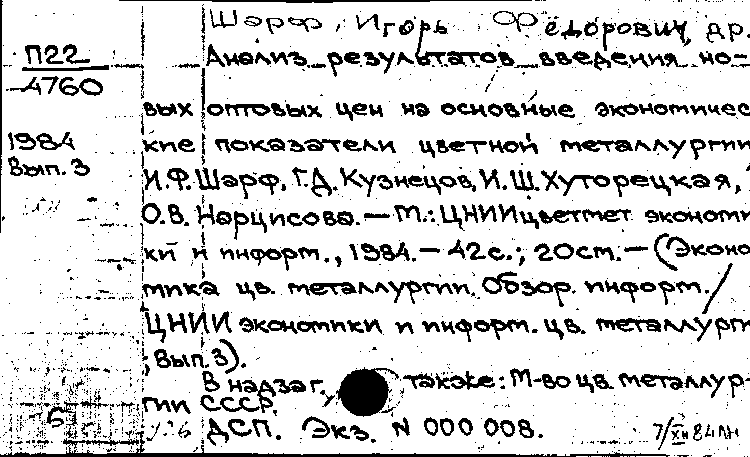 Шарф, Игорь Федорович, др.
П22
4760
Анализ результатов введения но-
вых оптовых цен на основные экономичес
1984
Вып. 3
кие показатели цветной металлургии
И.Ф. Шарф, Г.Д. Кузнецов, И.Ш. Хуторецкая,
О.В. Нарцисова. — М.: ЦНИИцветмет экономи
ки и информ., 1984. — 42 с.; 20 см. — (Эконо
мика цв. металлургии. Обзор. информ. /
ЦНИИ экономики и информ. цв. металлурги
; Вып. 3).
В надзаг. также: М-во цв. металлур-
гии СССР.
6
ДСП. Экз. N 000 008.